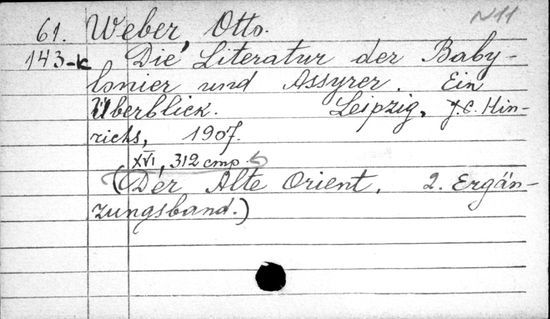 N11
61. Weber, Otto.
143-к Die Literatur der Baby-
lonier und Assyrer. Ein
Überblick. Leipzig, J. C. Hin-
richs, 1907.
XVI, 312 стр.
(Der Alte Orient. 2. Ergän-
zungsband.)